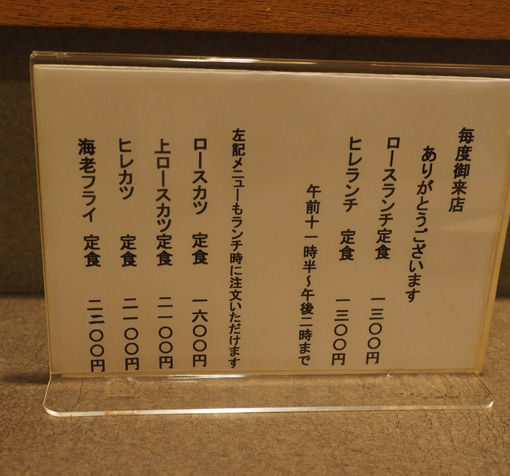 毎度御来店
ありがとうございます
ロースランチ定食 一三〇〇円
ヒレランチ 定食 一三〇〇円
午前十一時半〜午後二時まで
左記メニューもランチ時に注文いただけます
ロースカツ 定食 一六〇〇円
上ロースカツ定食 二一〇〇円
ヒレカツ 定食 二一〇〇円
海老フライ 定食 二二〇〇円